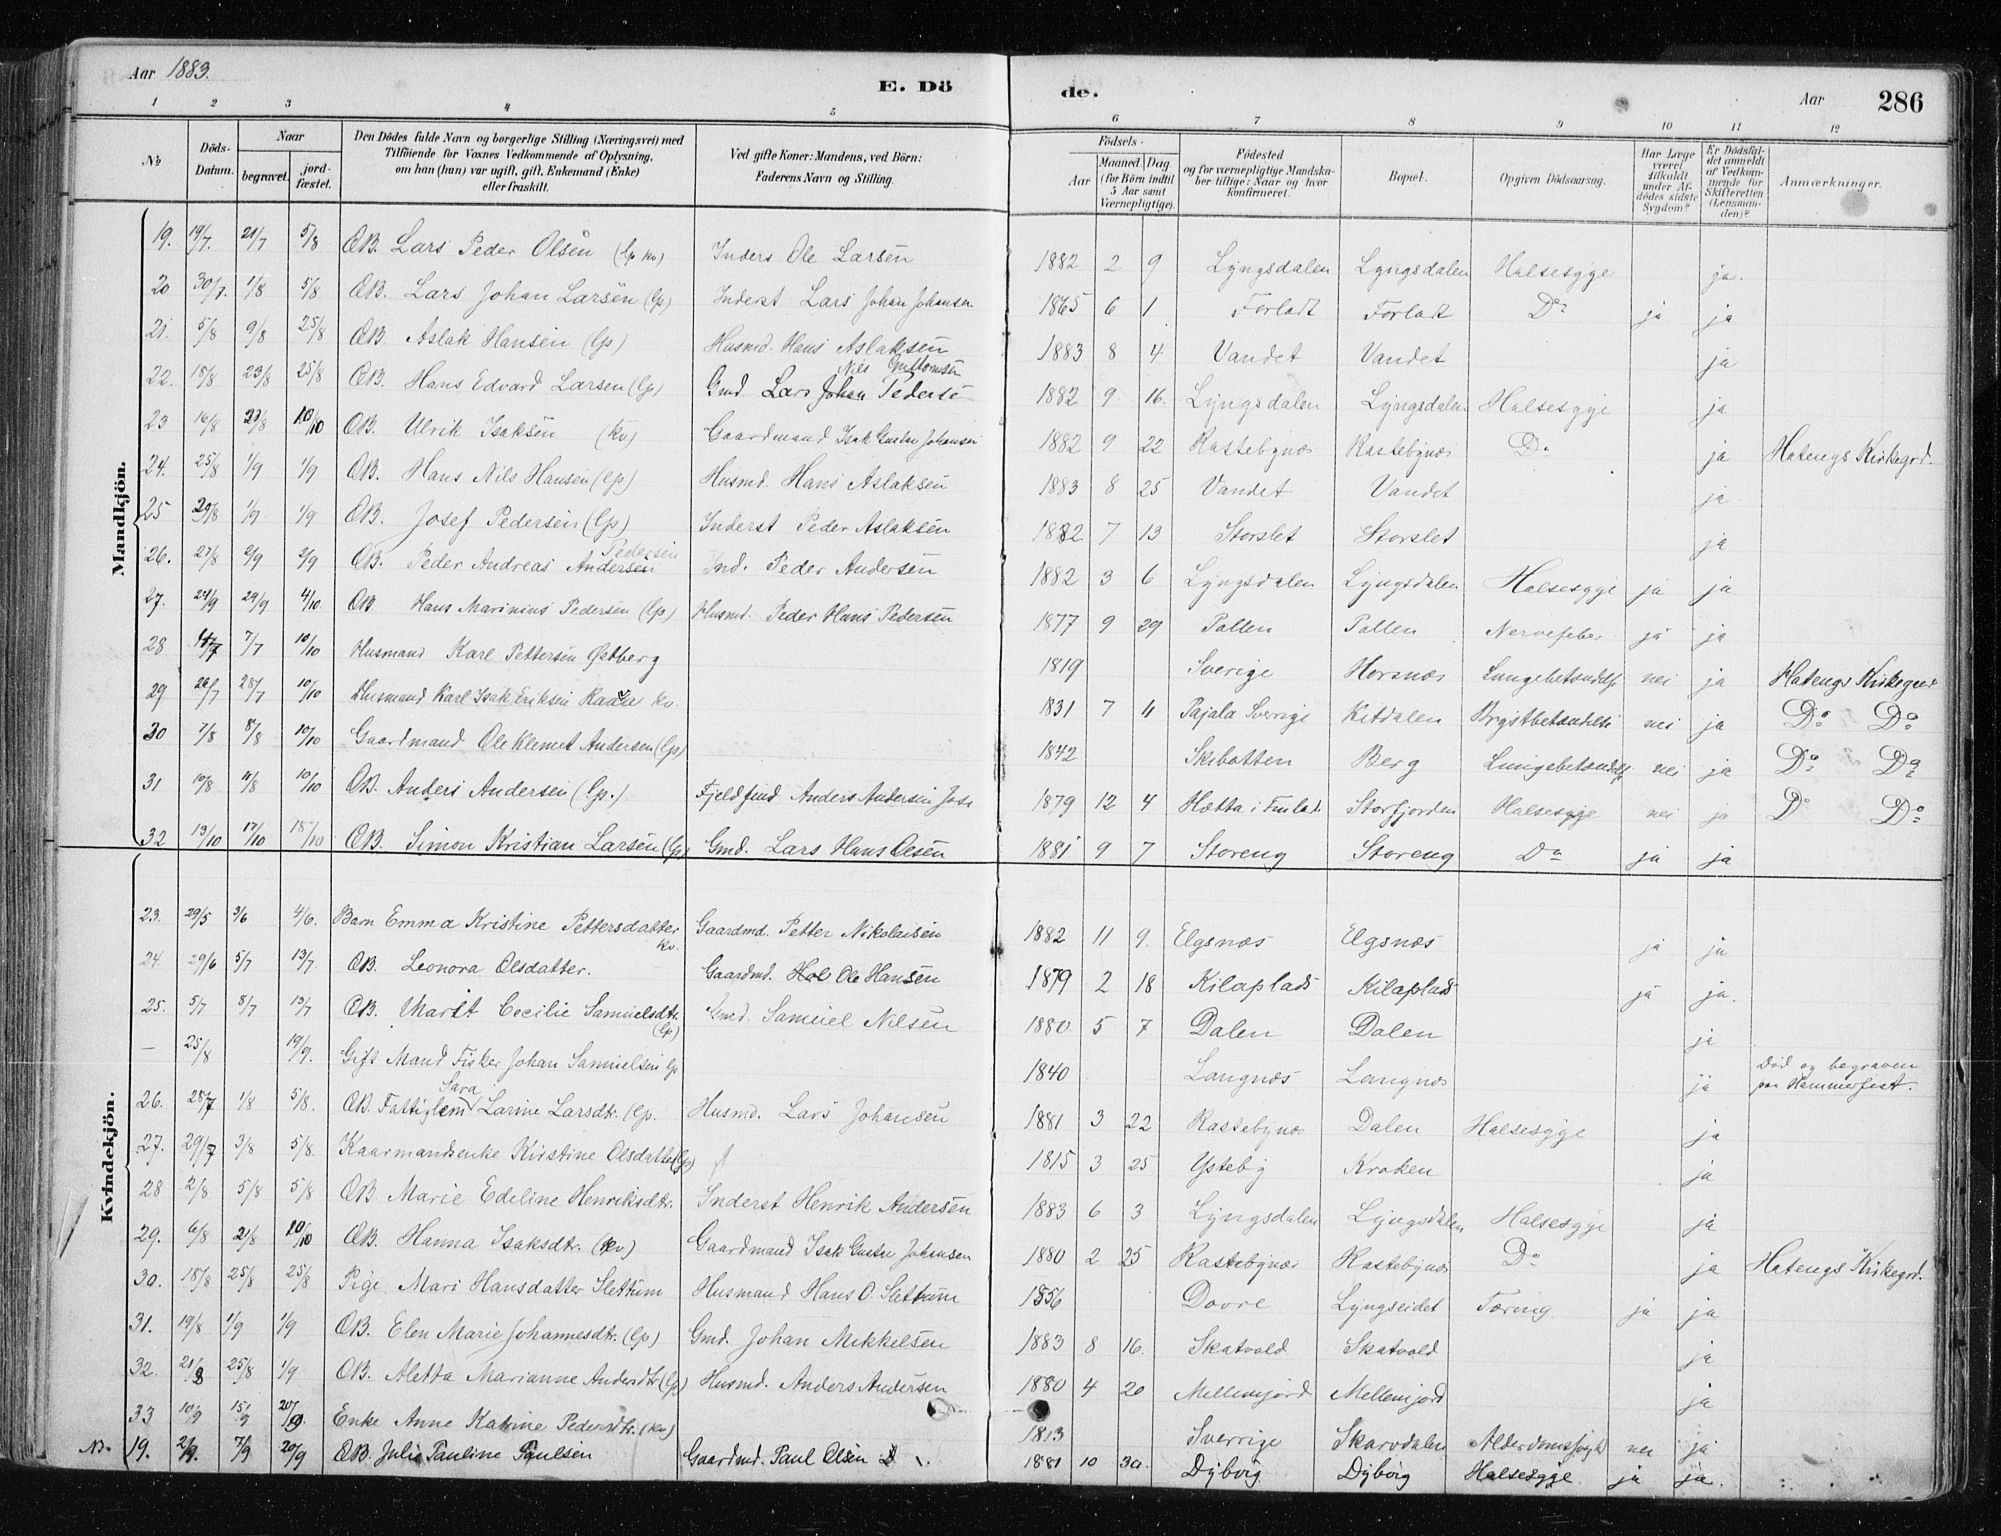 Aar 1883. E. Dö de. Aar 286
1 2 3 4 5 6 7 8 9 10 11 12
No Döds-Datum. Naar begravet. jord-fæstet. Den Dödes fulde Navn og borgerlige Stilling (Næringsvei) med Tilföiende for Voxnes Vedkommende af Oplysning, om han (hun) var ugift, gift, Enkemand (Enke) eller fraskilt. Ved gifte Koner: Mandens, ved Börn: Faderens Navn og Stilling. Födsels- Aar Maaned. Dag. (for Börn indtil 5 Aar samt Værnepligtige). Födested og for værnepligtige Mandskaber tillige: Naar og hvor konfirmeret. Bopæl. Opgiven Dödsaarsag. Har Læge været tilkaldt under Afdödes sidste Sygdom? Er Dödsfaldet anmeldt af Vedkommende for Skifteretten (Lensmanden)? Anmærkninger.
Mandkjön.
19. 19/7. 21/7 5/8 ÆB. Lars Peder Olsen (lp kv) Inders Ole Larsen 1882 2 9 Lyngsdalen Lyngsdalen Halsesyge ja.
20 30/7. 1/8 5/8 ÆB. Lars Johan Larsen (lp) Inderst Lars Johan Johansen 1865 6 1 Forladt Forladt Do ja ja
21. 5/8 9/8 25/8 ÆB. Aslak Hansen (lp) Husmd. Hans Aslaksen 1883 8 4 Vandet Vandet ja
22. 18/8 23/8 25/8 ÆB. Hans Edvard Larsen (lp) Gmd Lars Johan Pederse 1882 9 16. Lyngsdalen Lyngsdalen Halsesyge ja
23 16/8 23/8 10/10 ÆB. Ulrik Isaksen (kv) Gaardmand Isak Gustav Johansen 1882 9 22 Rastebynæs Rastebynæs Do ja Hatengs Kirkegrd.
24. 25/8 1/9 1/9 ÆB. Hans Nils Hansen (lp) Husmd. Hans Aslaksen 1883 8 25 Vandet Vandet ja
25 29/8 1/9 1/9 ÆB. Josef Pedersen (lp) Inderst Peder Aslaksen 1882 7 13 Storslet Storslet ja
26. 27/8 2/9 2/9 ÆB. Peder Andreas Andersen Pedersen Ind. Peder Andersen 1882 3 6 Lyngsdalen Lyngsdalen Halsesyge ja ja
27. 24/9 29/9 4/10. ÆB Hans Marinius Pedersen (lp) Husmd. Peder Hans Pedersen 1877 9 29 Pollen Pollen Nervefeber ja ja
28 7/7 10/10 Husmand Karl Pettersen Østberg 1819 Sverige Horsnæs Lungebetændelse nei ja Hatengs Kirkegrd
29 26/7 28/7 10/10 Husmand Karl Isak Eriksen kv. 1831 7 4 Pajala Sverrige Kitdalen Brystbetændelse nei ja Do Do
30 7/8 8/8 10/10 Gaardmand Ole Klemet Andersen (lp) 1842 Skibotten Berg Lungebetændelse nei ja Do Do
31 10/8 11/8 10/10 ÆB. Anders Andersen (lp.) Fjeldfind Anders Andersen 1879 12 4 Hætta i Finland Storfjorden Halsesyge nei ja D Do
32 13/10 17/10 18/10 ÆB. Simon Kristian Larsen (lp) Gmd. Lars Hans Olsen 1881 9 7 Storeng Storeng Do ja ja
Kvindekjön.
23. 29/5 3/6 4/6. Barn Emma Kristine Pettersdatter kv. Gaardmd. Petter Nikolaisen 1882 11 9. Elgsnæs Elgsnæs ja ja
24. 29/6 5/7 13/7. ÆB. Leonora Olsdatter. Gaardmd. Ole Hansen 1879 2 18 Kilaplads Kilaplads ja ja.
25. 5/7 8/7 13/7 ÆB. Marit Cecilie Samuelsdtr. (lp) Gmd. Samuel Nilsen 1880 5 7 Dalen Dalen ja
— 25/8 19/9. Gift Mand Fisker Johan Samuelsen lp 1840 Langnæs Langnæs ja Död og begraven paa Hammerfest.
26. 28/7 1/8 5/8. ÆB. Fattiglem Sara Larine Larsdtr. (lp. Husmd. Lars Johansen 1881 3 22 Rastebynæs Dalen Halsesyge ja
27. 29/7 3/8 5/8. Kaarmandsenke Kirstine Olsdatter (lp) 1815 3 25 Ysteby Kroken ja
28 2/8 5/8 5/8 ÆB. Marie Edeline Henriksdtr. Inderst Henrik Andersen 1883 6 3 Lyngsdalen Lyngsdalen Halsesyge ja
29. 6/8 21/8 10/10 ÆB. Hanna Isaksdtr. (kv) Gaardmand Isak Gustav Johansen 1880 2 25 Rastebynæs Rastebynæs Do ja Hatengs Kirkegrd.
30. 18/8 25/8 25/8 Pige Mari Hansdatter Slettum Husmand Hans O. Slettum 1856 Dovre Lyngseidet Tæring ja ja
31. 19/8 1/9 1/9 ÆB. Elen Marie Johannesdtr. (lp) Gmd. Johan Mikkelsen 1883 8 16. Skatvold Skatvold ja
32. 21/8 25/8 1/9 ÆB. Aletta Marianne Andersdtr (lp) Husmd. Anders Andersen 1880 4 20 Mellemjord Mellemjord ja
33 10/9 15/9 20/9. Enke Anne Katrine Pedersdtr. (kv) 1813 Sverrige Skarvdalen Alderdomssvagh nei ja
NB. 19. 2/9. 7/9 20/9 ÆB. Julie Pauline Paulsen Gaardmd. Paul Olsen 1881 10 30. Dybvig Dybvig Halsesyge ja ja.